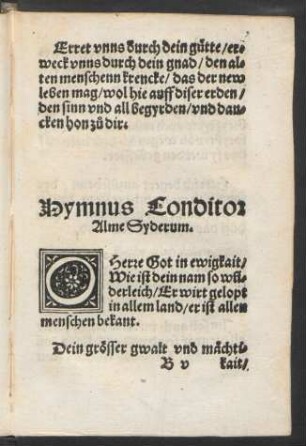 Erret vnns durch dein gůtte/er⸗
weck vnns durch dein gnad/den al⸗
ten menschenn krencke/das der new
leben mag/wol hie auff diser erden/
den sinn vnd all begyrden/vnd dan⸗
cken hon zů dir.
Hymnus Conditor
Alme Syderum.
O Herre Got in ewigkait/
Wie ist dein nam so wũ⸗
derleich/Er wirt gelopt
in allem land/er ist allen
menschen bekant.
Dein grösser gwalt vnd mächti⸗
B v kait/